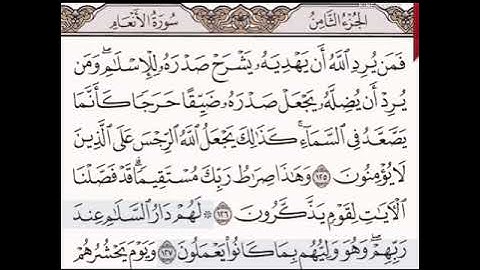 سُورَةُ الأَنْعَامِ الجُزْءُ الثَّامِنُ
فَمَن يُرِدِ ٱللَّهُ أَن يَهْدِيَهُۥ يَشْرَحْ صَدْرَهُۥ لِلْإِسْلَٰمِۖ وَمَن
يُرِدْ أَن يُضِلَّهُۥ يَجْعَلْ صَدْرَهُۥ ضَيِّقًا حَرَجًا كَأَنَّمَا
يَصَّعَّدُ فِي ٱلسَّمَآءِۚ كَذَٰلِكَ يَجْعَلُ ٱللَّهُ ٱلرِّجْسَ عَلَى ٱلَّذِينَ
لَا يُؤْمِنُونَ ١٢٥ وَهَٰذَا صِرَٰطُ رَبِّكَ مُسْتَقِيمًاۗ قَدْ فَصَّلْنَا
ٱلْأٓيَٰتِ لِقَوْمٍ يَذَّكَّرُونَ ١٢٦ ۞ لَهُمْ دَارُ ٱلسَّلَٰمِ عِندَ
رَبِّهِمْۖ وَهُوَ وَلِيُّهُم بِمَا كَانُوا۟ يَعْمَلُونَ ١٢٧ وَيَوْمَ يَحْشُرُهُمْ